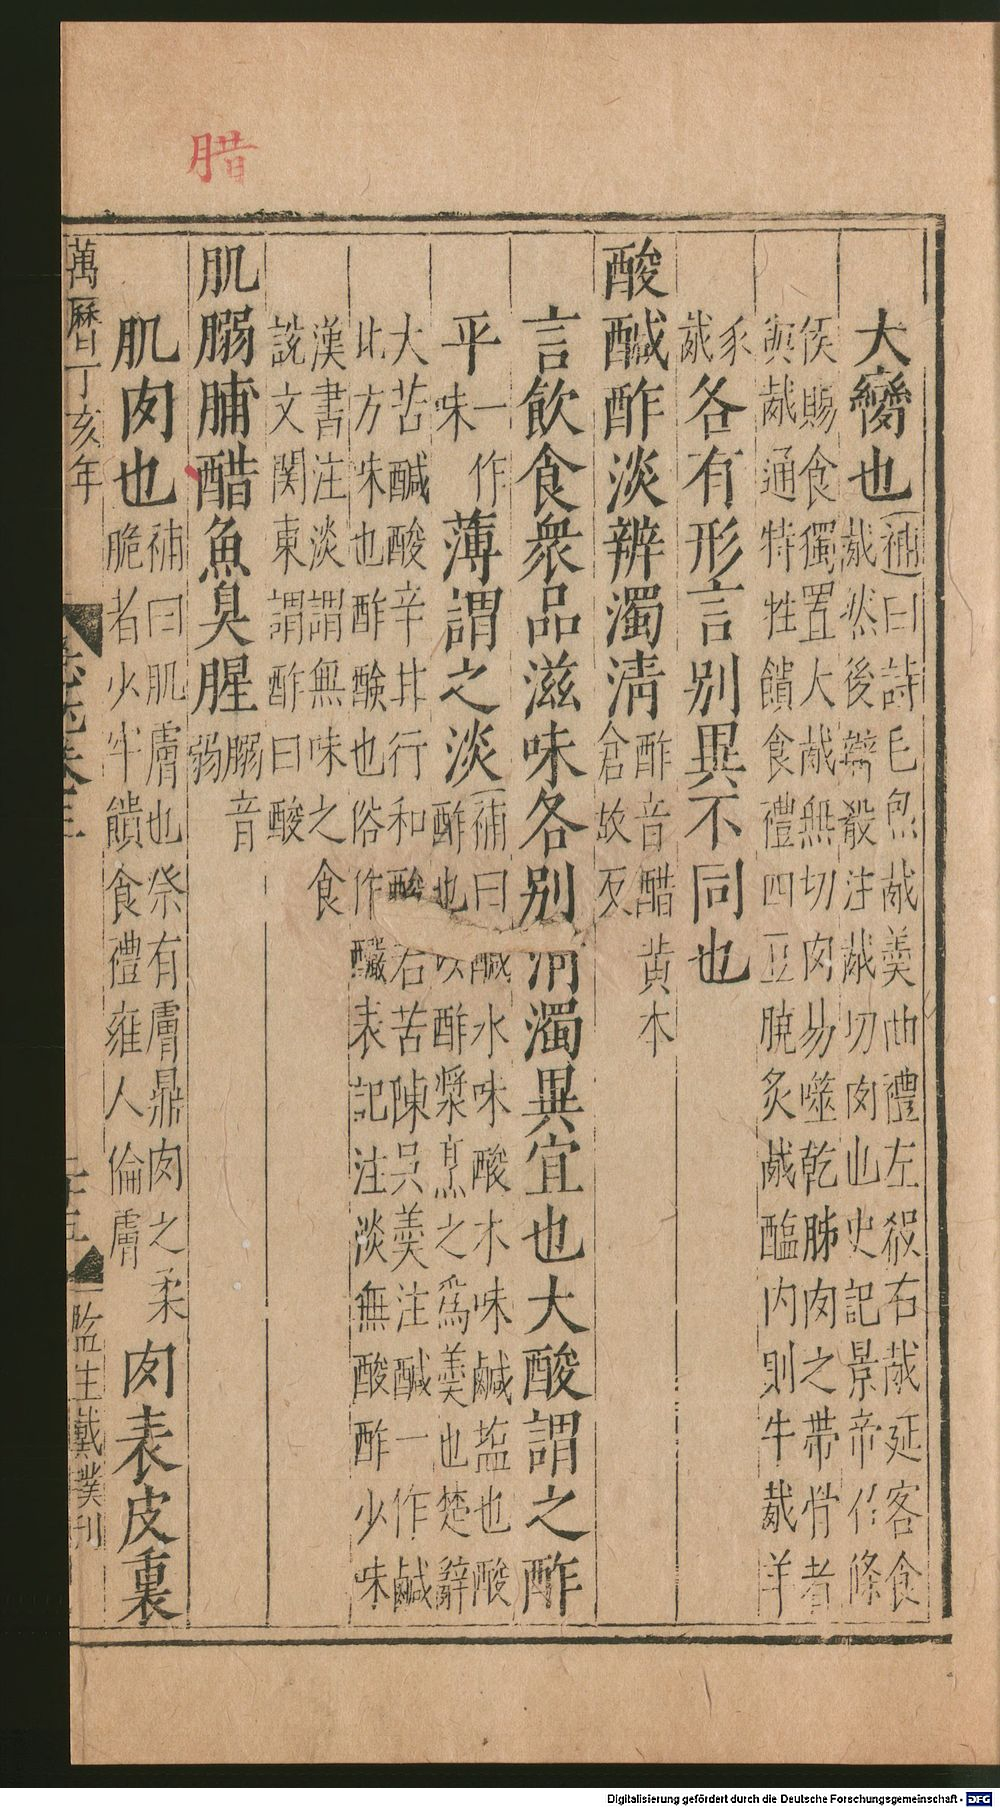 大臠也補曰詩毛炰胾羹曲禮左殽右胾延客食
胾然後辯殽注胾切肉也史記景帝召條
侯賜食獨置大胾無切肉易噬乾胏肉之帶骨者
與胾通特牲饋食禮四豆膮炙胾醢内則牛胾羊
豕
胾
各有形言别異不同也
酸醎酢淡辨濁清酢音醋黃本
倉故反
言飲食衆品滋味各别清濁異宜也大酸謂之酢
平一作
味
薄謂之淡補曰鹹水味酸木味鹹塩也酸
酢也以酢漿烹之爲羹也楚辭
大苦醎酸辛甘行和酸若苦陳吴羹注醎一作鹹
北方味也酢醶也俗作釅表記注淡無酸酢少味
漢書注淡謂無味之食
說文関東謂酢曰酸
肌䐞脯醋魚臭腥䐞音
弱
腊
肌肉也補曰肌膚也祭有膚鼎肉之柔
脆者少牢饋食禮雍人倫膚
肉表皮裏
萬曆丁亥年
急就卷三
二十五
監生戴樸刊
Digitalisierung gefördert durch die Deutsche Forschungsgemeinschaft - DFG